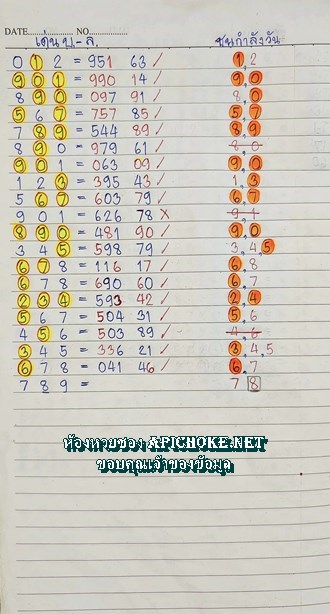 DATE............ NO...............
เด่น บ - ล. ชนกำลังวัน
0 1 2 = 951 63 ✓ 1, 2
9 0 1 = 990 14 ✓ 9, 0
8 9 0 = 097 91 ✓ 8, 0
5 6 7 = 757 85 ✓ 5, 7
7 8 9 = 544 89 ✓ 8, 9
8 9 0 = 979 61 ✓ 8, 0
9 0 1 = 063 09 ✓ 9, 0
1 2 3 = 395 43 ✓ 1, 3
5 6 7 = 603 79 ✓ 6, 7
9 0 1 = 626 78 ✗ 9, 1
8 9 0 = 481 90 ✓ 9, 0
3 4 5 = 598 79 ✓ 3, 4, 5
6 7 8 = 116 17 ✓ 6, 8
6 7 8 = 690 60 ✓ 6, 7
2 3 4 = 593 42 ✓ 2, 4
5 6 7 = 504 31 ✓ 5, 6
4 5 6 = 503 89 ✓ 4, 6
3 4 5 = 336 21 ✓ 3, 4, 5
6 7 8 = 041 46 ✓ 6, 7
7 8 9 = 7 8
ห้องหวยซอง APICHOKE.NET
ขอบคุณเจ้าของข้อมูล